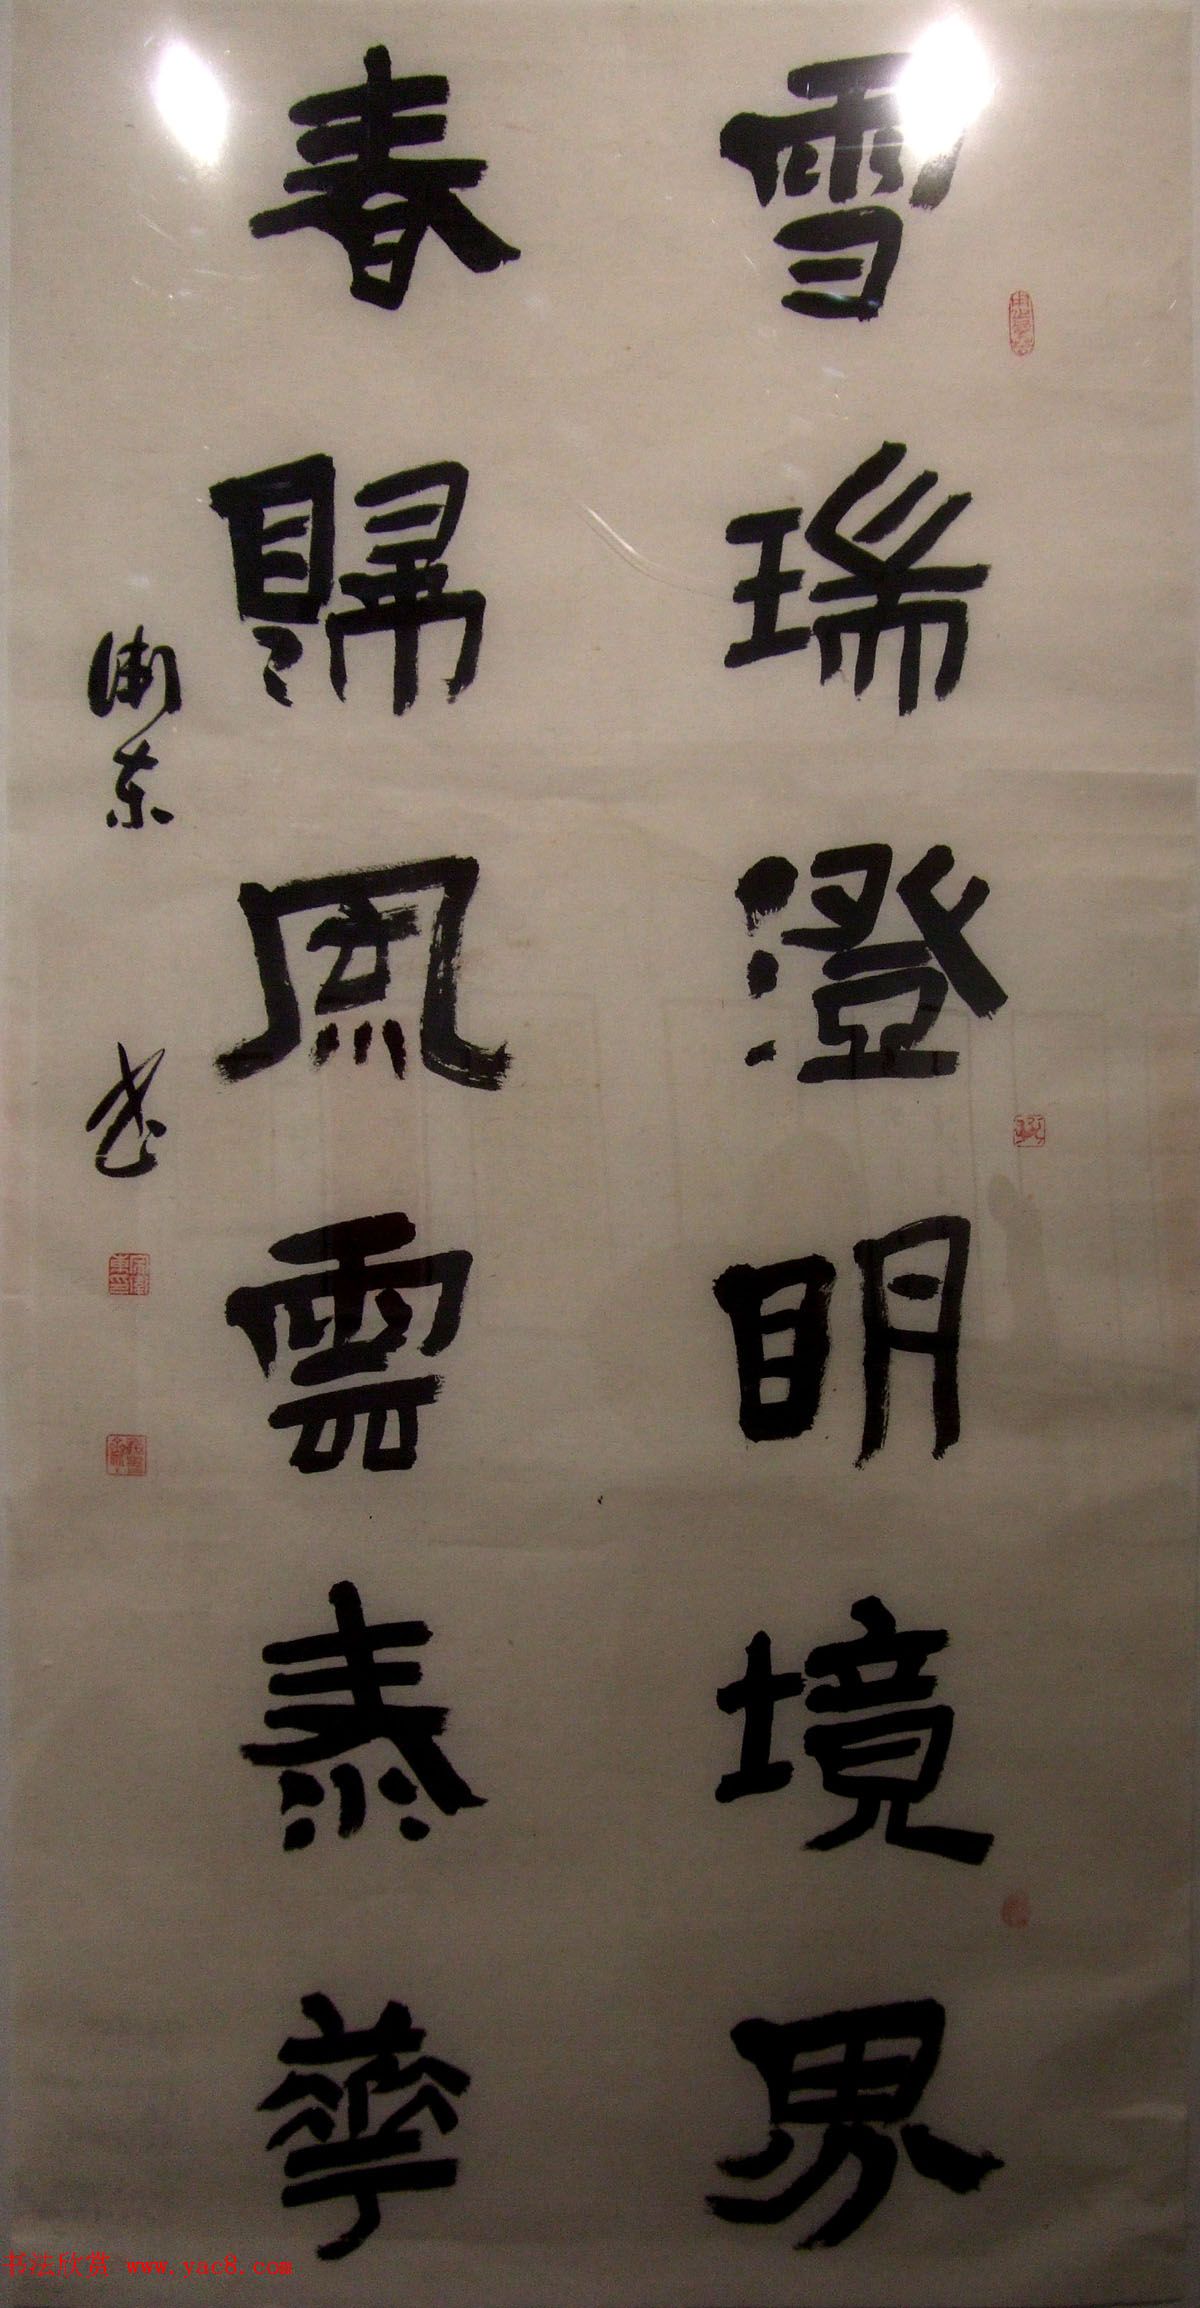 雪瑞澄明境界
春歸鳳雲泰華
衛东 书
书法欣赏 www.yac8.com